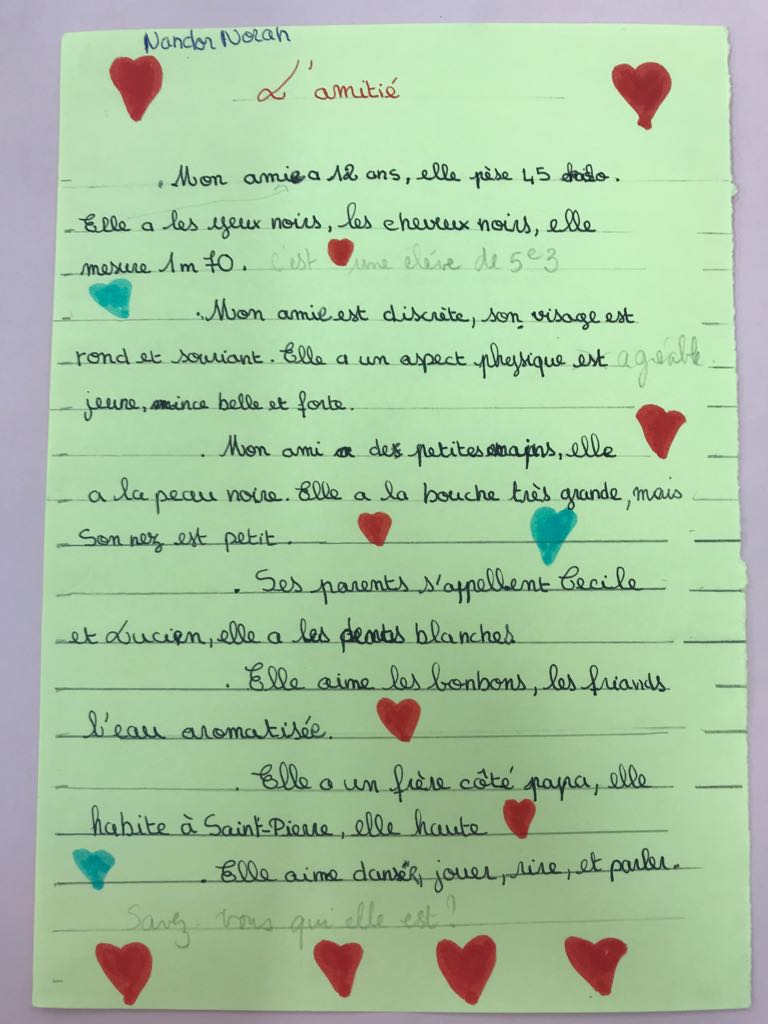 Nandor Norah
L'amitié
. Mon amie a 12 ans, elle pèse 45 kilo.
Elle a les yeux noirs, les cheveux noirs, elle
mesure 1m70. c'est une elève de 5e3
. Mon amie est discrète, son visage est
rond et souriant. Elle a un aspect physique est agréable
jeune, mince belle et forte.
. Mon ami a des petites mains, elle
a la peau noire. Elle a la bouche très grande, mais
Son nez est petit.
. Ses parents s'appellent Cecile
et Lucien, elle a les dents blanches
. Elle aime les bonbons, les friands
l'eau aromatisée.
. Elle a un frère côté papa, elle
habite à Saint-Pierre, elle haute
. Elle aime danser, jouer, rire, et parler.
Savez-vous qui elle est ?